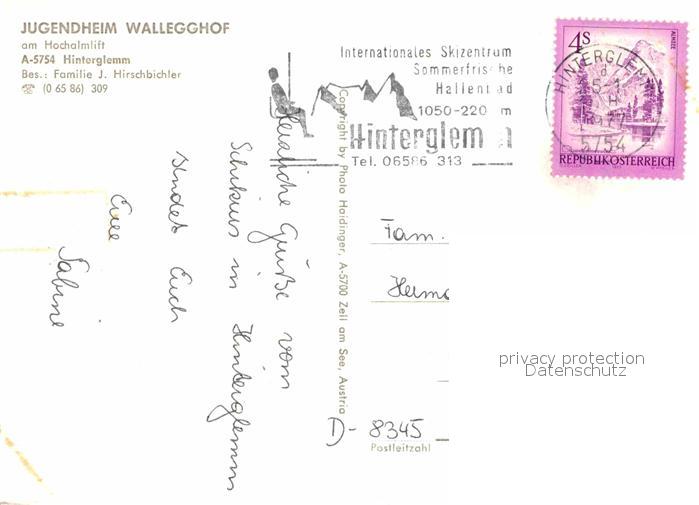 JUGENDHEIM WALLEGGHOF
am Hochalmlift
A-5754 Hinterglemm
Bes.: Familie J. Hirschbichler
☎ (0 65 86) 309
Internationales Skizentrum
Sommerfrische
Hallenbad
1050-220 m
Hinterglemm
Tel. 06586 313
4S
ALMSEE
HINTERGLEMM
5754
REPUBLIK ÖSTERREICH
Herzliche Grüße vom
Schikurs in Hinterglemm
sendet Euch
Eure
Sabine
Copyright by Photo Haidinger, A-5700 Zell am See, Austria
Fam.
D- 8345
Postleitzahl
privacy protection
Datenschutz